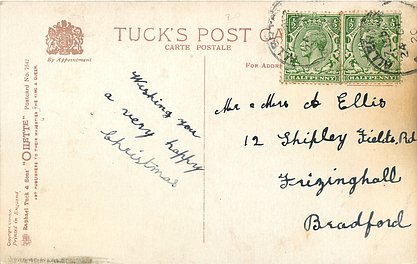 TUCK'S POST CA
CARTE POSTALE
By Appointment
For Addres
HALFPENNY HALFPENNY
Wishing you
a very happy
Christmas
Mr & Mrs A Ellis
12 Shipley Fields, Rd
Frizinghall
Bradford
Raphael Tuck & Sons' "OILETTE" Postcard No.
ART PUBLISHERS TO THEIR MAJESTIES THE KING & QUEEN
Printed in England